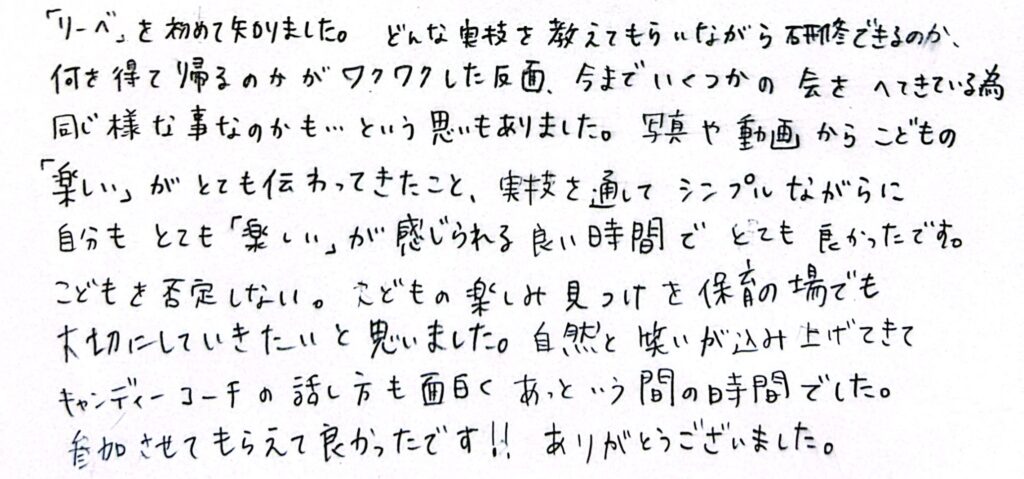 「リーベ」を初めて知りました。どんな実技を教えてもらいながら研修できるのか、
何を得て帰るのかがワクワクした反面、今までいくつかの会をへてきている為
同じ様な事なのかも…という思いもありました。写真や動画からこどもの
「楽しい」がとても伝わってきたこと、実技を通してシンプルながらに
自分もとても「楽しい」が感じられる良い時間でとても良かったです。
こどもを否定しない。こどもの楽しみ見つけを保育の場でも
大切にしていきたいと思いました。自然と笑いが込み上げてきて
キャンディーコーチの話し方も面白くあっという間の時間でした。
参加させてもらえて良かったです!! ありがとうございました。